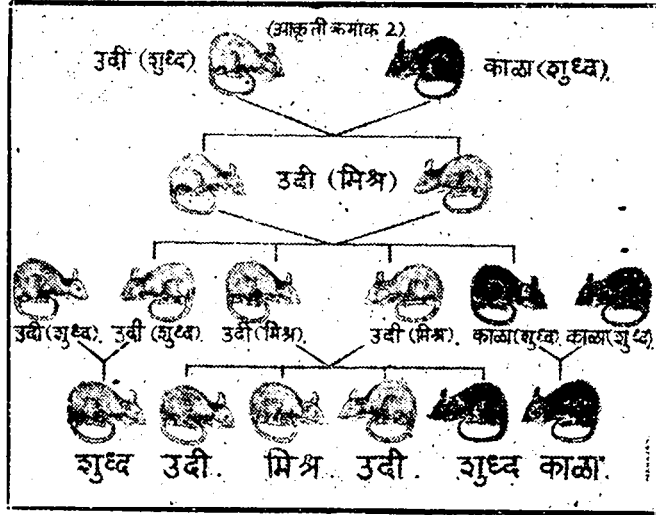 (आकृती क्रमांक 2)
उदी (शुध्द) काळा (शुध्द)
उदी (मिश्र)
उदी (शुध्द). उदी (शुध्द). उदी (मिश्र). उदी (मिश्र). काळा (शुध्द). काळा (शुध्द).
शुध्द उदी. मिश्र उदी. शुध्द काळा.